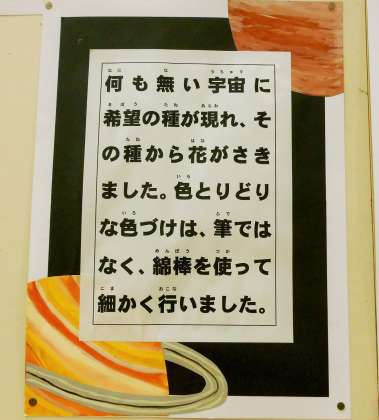 何も無い宇宙に
希望の種が現れ、そ
の種から花がさき
ました。色とりどり
な色づけは、筆では
なく、綿棒を使って
細かく行いました。